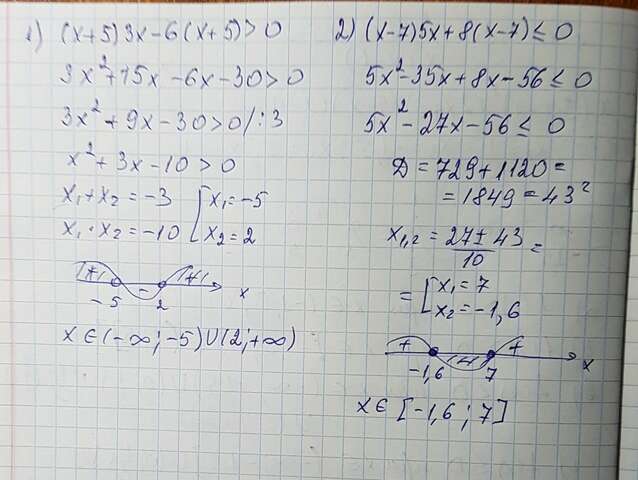 1) (x+5)3x-6(x+5)>0
3x²+15x-6x-30>0
3x²+9x-30>0/:3
x²+3x-10>0
x₁+x₂=-3 [x₁=-5
x₁·x₂=-10 [x₂=2
+ - +
-5 2 x
x∈(-∞;-5)∪(2;+∞)
2) (x-7)5x+8(x-7)≤0
5x²-35x+8x-56≤0
5x²-27x-56≤0
Д=729+1120=
=1849=43²
x₁,₂=27±43/10=
=[x₁=7
x₂=-1,6
+ - +
-1,6 7 x
x∈[-1,6;7]